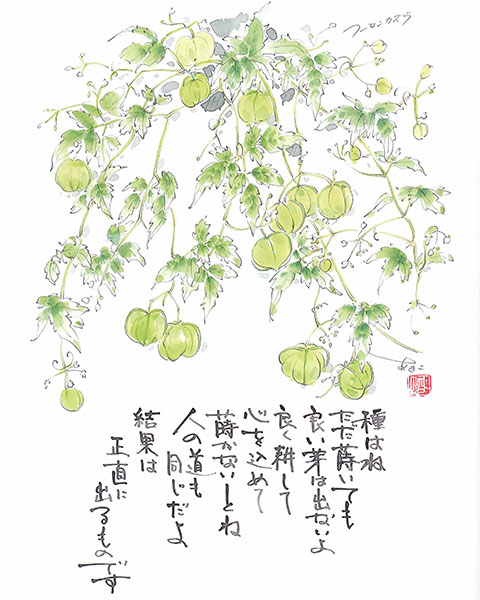 フーセンカズラ
種はね
ただ蒔いても
良い芽は出ないよ
良く耕して
心を込めて
蒔かないとね
人の道も
同じだよ
結果は
正直に
出るものです